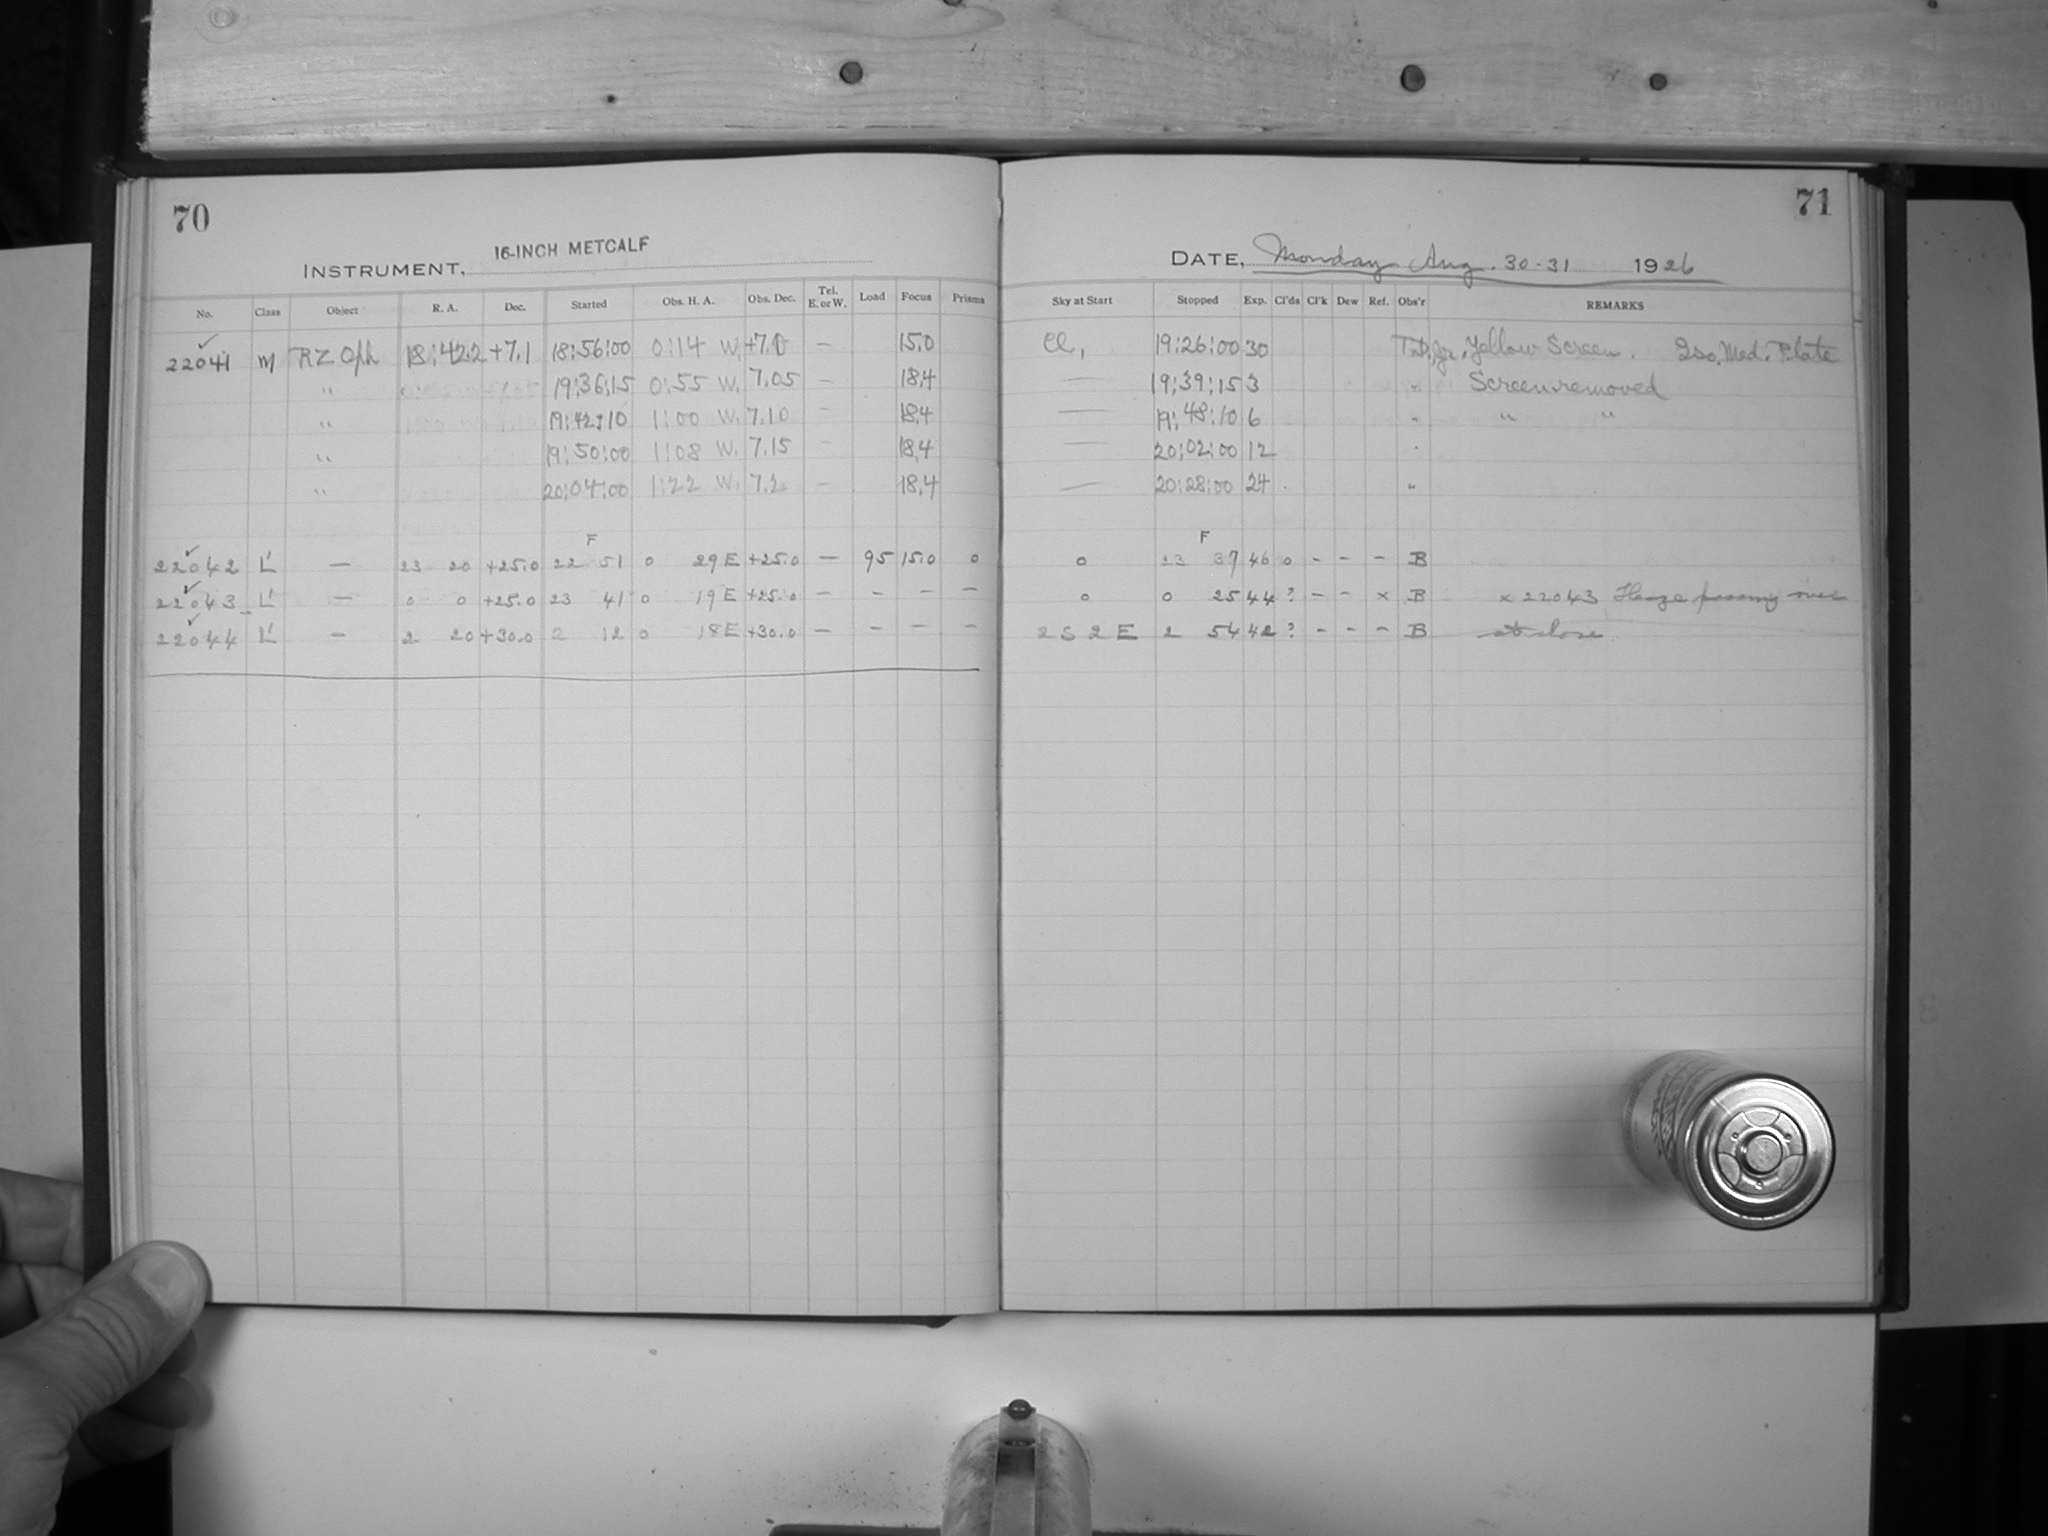 70
INSTRUMENT, 16-INCH METCALF
No. Class Object R. A. Dec. Started Obs. H. A. Obs. Dec. Tel. E. or W. Load Focus Prisms
22041 M RZ Oph 18:42.2 +7.1 18:56:00 0:14 W. +7.0 — 15.0
" 19:36:15 0:55 W. 7.05 — 18.4
" 19:42:10 1:00 W. 7.10 — 18.4
" 19:50:00 1:08 W. 7.15 — 18.4
" 20:04:00 1:22 W. 7.2 — 18.4
F
22042 L' — 23 20 +25.0 22 51 0 29 E +25.0 — 95 15.0 0
22043 L' — 0 0 +25.0 23 41 0 19 E +25.0 — - — —
22044 L' — 2 20 +30.0 2 12 0 18 E +30.0 — - — —
71
DATE, Monday Aug. 30-31 1926
Sky at Start Stopped Exp. Cl'ds Cl'k Dew Ref. Obs'r REMARKS
Cl, 19:26:00 30 Yellow Screen. Iso. Med. Plate
— 19:39:15 3 " Screen removed
— 19:48:10 6 " " "
— 20:02:00 12
— 20:28:00 24 "
F
0 23 37 46 0 - - - B
0 0 25 44 ? - - x B x 22043 Haze passing over
2 S 2 E 2 54 42 ? - - - B at close.